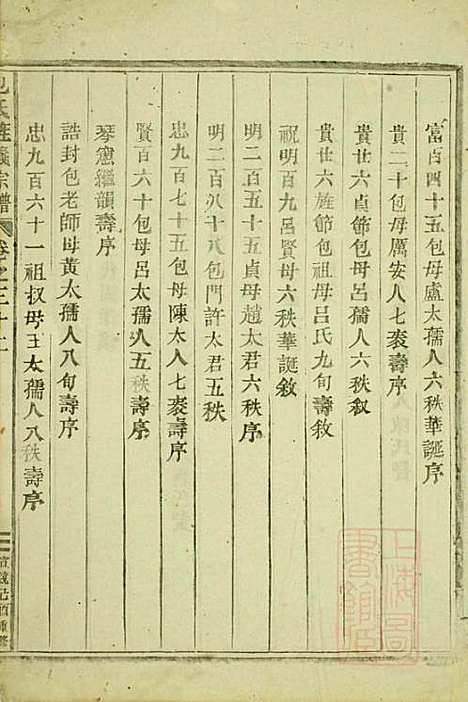 富百四十五包母盧太孺人六秩華誕序
貴二十包母厲安人七袠壽序
貴廿六貞節包母呂孺人六秩叙
貴廿六旌節包祖母呂氏九旬壽敘
祝明百九呂賢母六秩華誕敘
明二百五貞母趙太君六秩序
明二百八十八包門許太君五秩
忠九百七十五包母陳太人七袠壽序
賢百六十包母呂太孺人五秩壽序
琴窻繼韻壽序
誥封包老師母黃太孺人八旬壽序
忠九百六十一祖叔母王太孺人八秩壽序
包氏旌義宗譜
卷之三十二
宣統己酉重修
上海圖書館藏